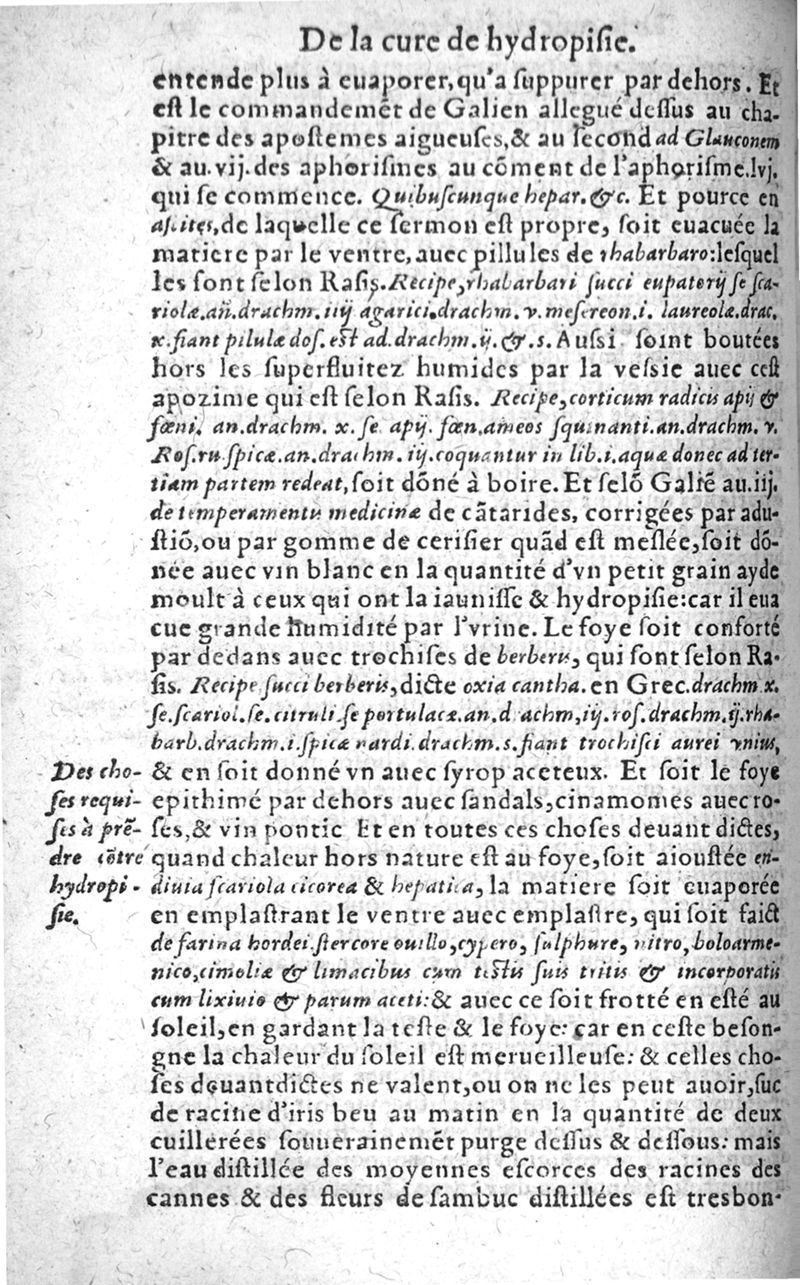 De la cure de hydropiſie.
entende plus à euaporer, qu'a ſuppurer par dehors. Et
eſt le commandemẽt de Galien allegué deſſus au cha-
pitre des apoſtemes aigueuſes, & au ſecond ad Glauconem
& au. vij. des aphoriſmes au cõment de l'aphoriſme. lvj.
qui ſe commence. Quibuſcunque hepar. &c. Et pource en
aſcites, de laquelle ce ſermon eſt propre, ſoit euacuée la
matiere par le ventre, auec pillules de rhabarbaro: leſquel
les ſont ſelon Raſis. Recipe, rhabarbari ſucci eupatorij ſe ſca-
riolæ. añ. drachm. iiij agarici. drachm. v. meſereon. i. laureolæ. drac.
x. fiant pilulæ doſ. est ad. drachm. ij. &. s. Auſsi ſoint boutées
hors les ſuperfluitez humides par la veſsie auec ceſt
apozime qui eſt ſelon Raſis. Recipe, corticum radicis apij &
fœni. an. drachm. x. ſe apij. fœn. ameos ſquinanti. an. drachm. v.
Roſ. ru ſpicæ. an. drachm. iij. coquantur in lib. i. aquæ donec ad ter-
tiam partem redeat, ſoit dõné à boire. Et ſelõ Galiẽ au. iij.
de temperamentu medicinæ de cãtarides, corrigées par adu-
ſtiõ, ou par gomme de ceriſier quãd eſt meſlée, ſoit dõ-
née auec vin blanc en la quantité d'vn petit grain ayde
moult à ceux qui ont la iauniſſe & hydropiſie: car il eua
cue grande humidité par l'vrine. Le foye ſoit conforté
par dedans auec trochiſes de berberis, qui ſont ſelon Ra-
ſis. Recipe ſucci berberis, dicte oxia cantha. en Grec. drachm x.
ſe. ſcariol. ſe. citruli. ſe portulacæ. an. drachm, iij. roſ. drachm. ij. rha-
barb. drachm. i. ſpicæ nardi. drachm. s. fiant trochiſci aurei vnius,
& en ſoit donné vn auec ſyrop aceteux. Et ſoit le foye
epithimé par dehors auec ſandals, cinamomes auec ro-
ſes, & vin pontic Et en toutes ces choſes deuant dictes,
quand chaleur hors nature eſt au foye, ſoit aiouſtée en-
diuia ſcariola cicorea & hepatica, la matiere ſoit euaporée
en emplaſtrant le ventre auec emplaſtre, qui ſoit faict
de farina hordei. ſtercore ouillo, cypero, ſulphure, nitro, boloarme-
nico, cimoliæ & limacibus cum testis ſuis tritis & incorporatis
cum lixiuio & parum aceti: & auec ce ſoit frotté en eſté au
ſoleil, en gardant la teſte & le foye: car en ceſte beſon-
gne la chaleur du ſoleil eſt merueilleuſe: & celles cho-
ſes deuantdictes ne valent, ou on ne les peut auoir, ſuc
de racine d'iris beu au matin en la quantité de deux
cuillerées ſouuerainemẽt purge deſſus & deſſous: mais
l'eau diſtillée des moyennes eſcorces des racines des
cannes & des fleurs de ſambuc diſtillées eſt tresbon-
Des cho-
ſes requi-
ſes à prẽ-
dre cõtre
hydropi-
ſie.